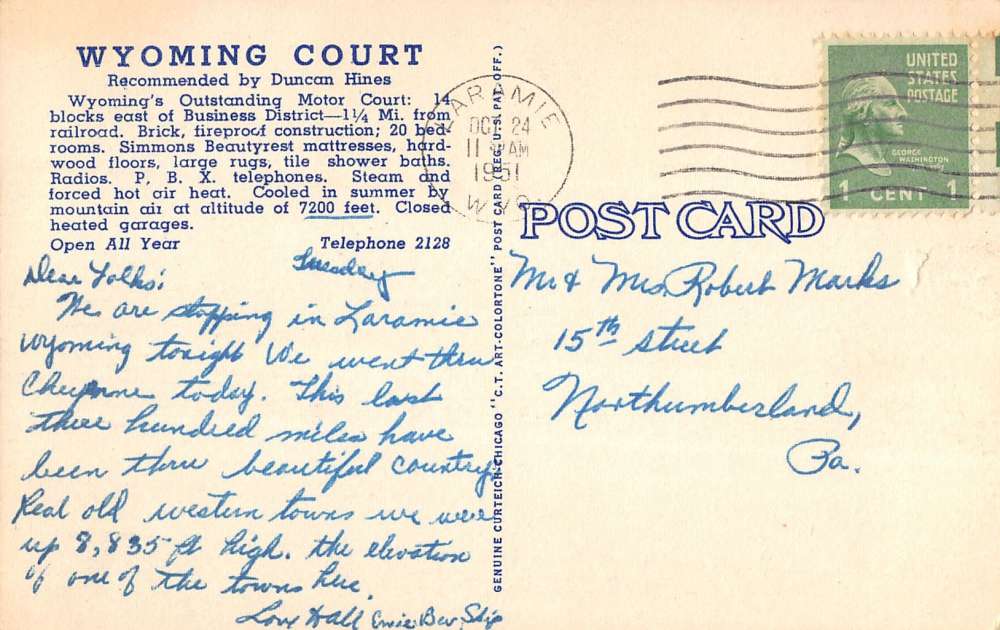 WYOMING COURT
Recommended by Duncan Hines
Wyoming's Outstanding Motor Court: 14
blocks east of Business District—1¼ Mi. from
railroad. Brick, fireproof construction; 20 bed-
rooms. Simmons Beautyrest mattresses, hard-
wood floors, large rugs, tile shower baths.
Radios. P. B. X. telephones. Steam and
forced hot air heat. Cooled in summer by
mountain air at altitude of 7200 feet. Closed
heated garages.
Open All Year Telephone 2128
Tuesday
Dear Folks:
We are stopping in Laramie
Wyoming tonight We went thru
Cheyenne today. This last
three hundred miles have
been thru beautiful country.
Real old western towns we were
up 8,835 ft high. the elevation
of one of the towns here.
Love
Ernie Bev, Skip
GENUINE CURTEICH-CHICAGO "C.T. ART-COLORTONE" POST CARD (REG. U.S. PAT. OFF.)
LARAMIE
OCT 24
11 AM
1951
WYO
UNITED
STATES
POSTAGE
GEORGE
WASHINGTON
1 CENT 1
POST CARD
Mr & Mrs. Robert Marks
15th Street
Northumberland,
Pa.